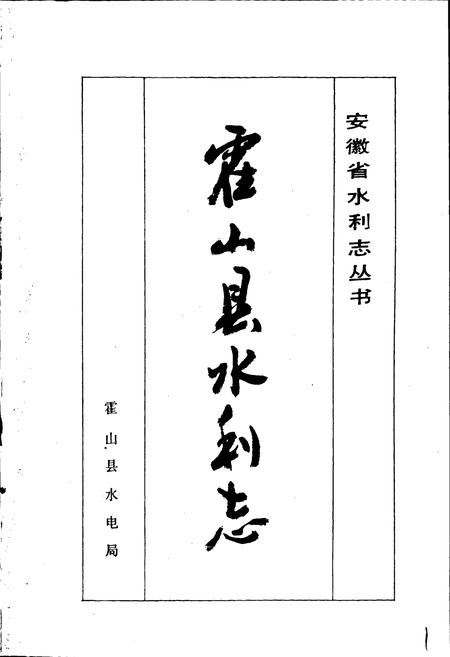 安徽省水利志丛书
霍山县水利志
霍山县水电局